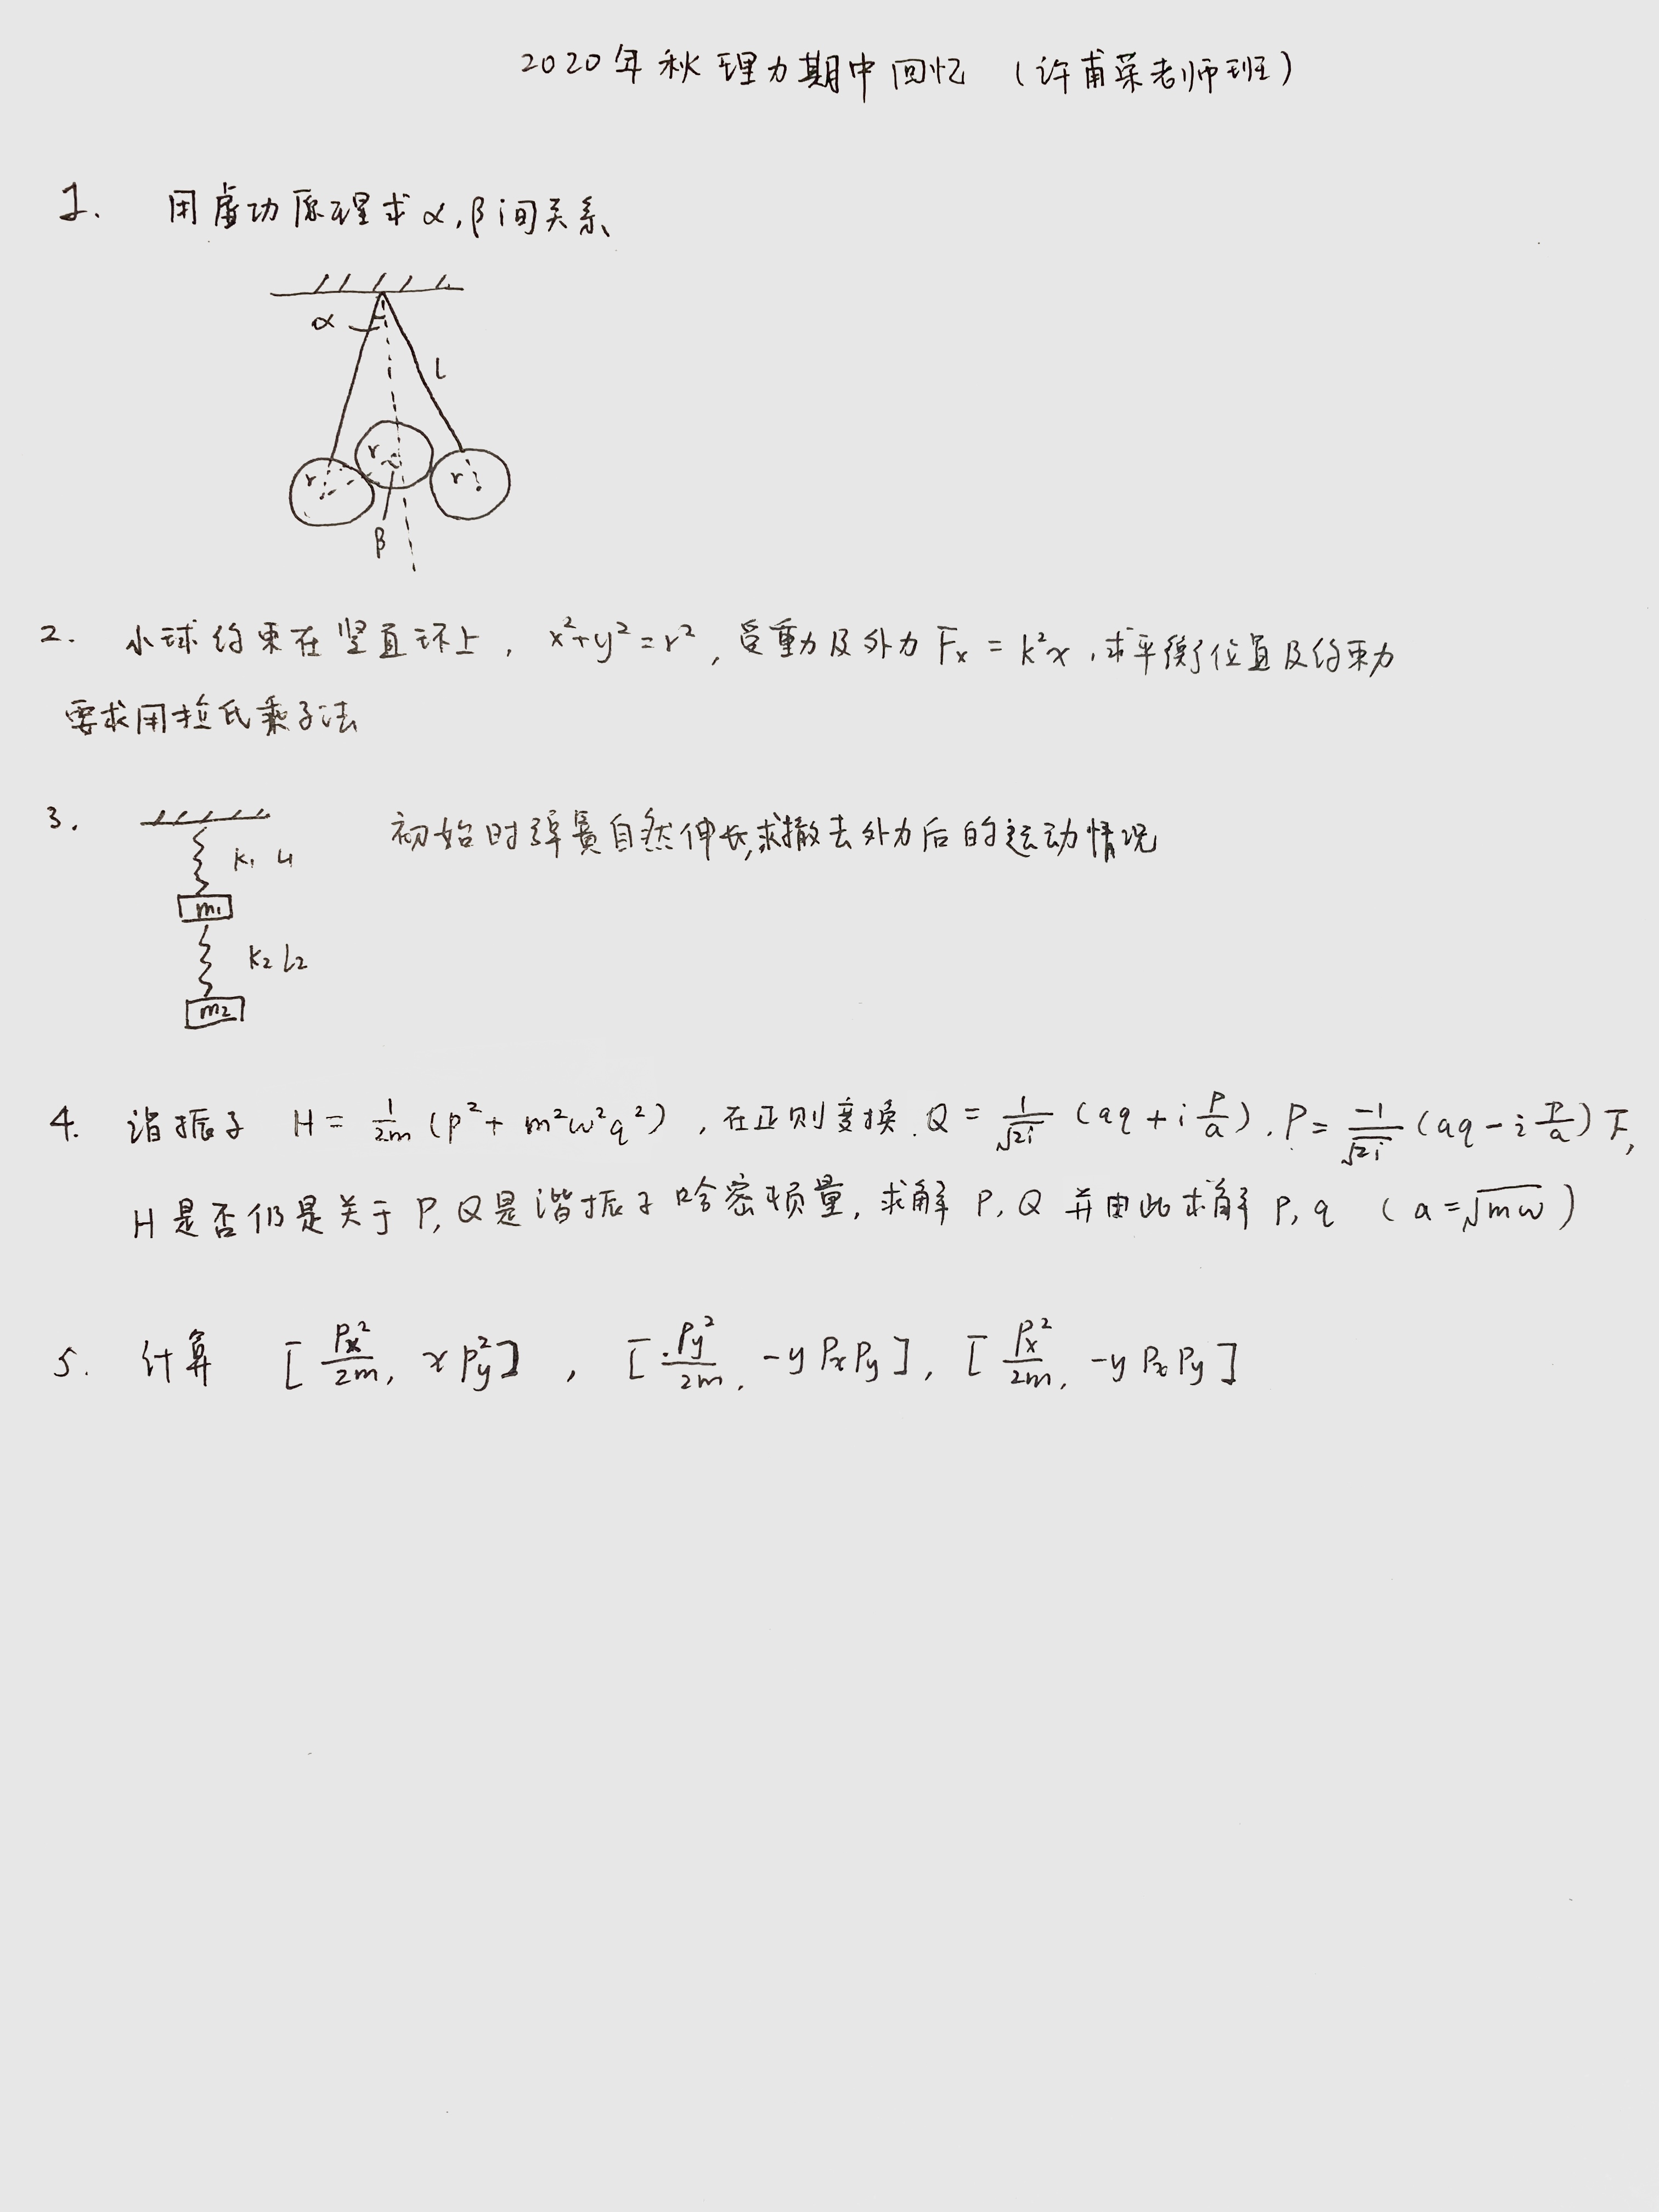 2020年秋理力期中回忆 (许甫荣老师班)
1. 用虚功原理求α,β间关系
α
l
r r r
β
2. 小球约束在竖直环上, x²+y²=r², 受重力及外力 Fx = k²x, 求平衡位置及约束力
要求用拉氏乘子法
3. 初始时弹簧自然伸长,求撤去外力后的运动情况
k₁ L₁
m₁
k₂ L₂
m₂
4. 谐振子 H = 1/2m (p² + m²ω²q²), 在正则变换 Q = 1/√2i (aq + i p/a), P = -1/√2i (aq - i p/a) 下,
H是否仍是关于P,Q是谐振子哈密顿量, 求解 P,Q 并由此求解 p,q (a=√mω)
5. 计算 [Px²/2m, xPy²], [Py²/2m, -yPxPy], [Px²/2m, -yPxPy]